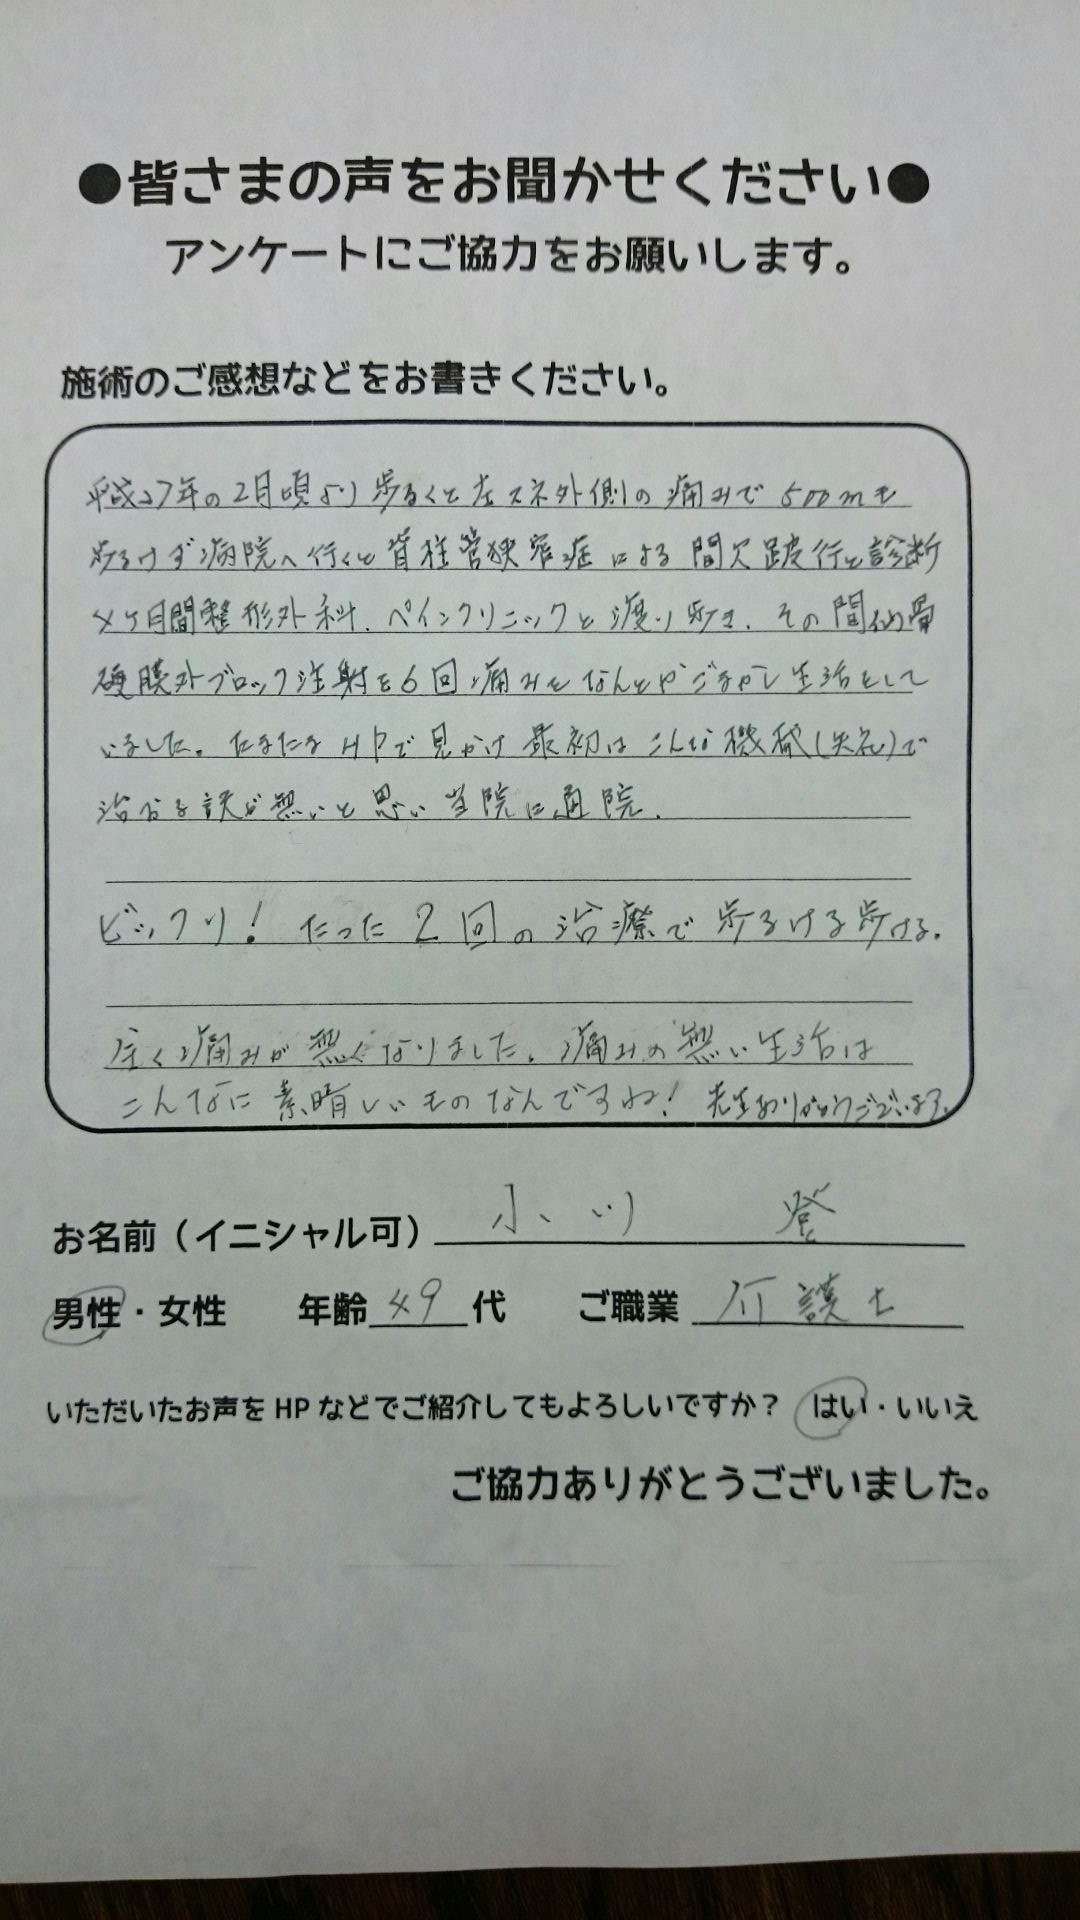 ●皆さまの声をお聞かせください●
アンケートにご協力をお願いします。
施術のご感想などをお書きください。
平成27年の2月頃より歩るくと左スネ外側の痛みで500mも
歩るけず病院へ行くと脊柱管狭窄症による間欠跛行と診断
4ヶ月間整形外科、ペインクリニックと渡り歩き、その間仙骨
硬膜外ブロック注射を6回痛みをなんとかごまかし生活をして
いました。たまたまHPで見かけ最初はこんな機械(失礼)で
治おる訳が無いと思い当院に通院.
ビックリ!たった2回の治療で歩るける歩ける.
全く痛みが無くなりました。痛みの無い生活は
こんなに素晴しいものなんですね!先生ありがとうございます.
お名前(イニシャル可) 小川 登
男性・女性 年齢 49 代 ご職業 介護士
いただいたお声をHPなどでご紹介してもよろしいですか? はい・いいえ
ご協力ありがとうございました。